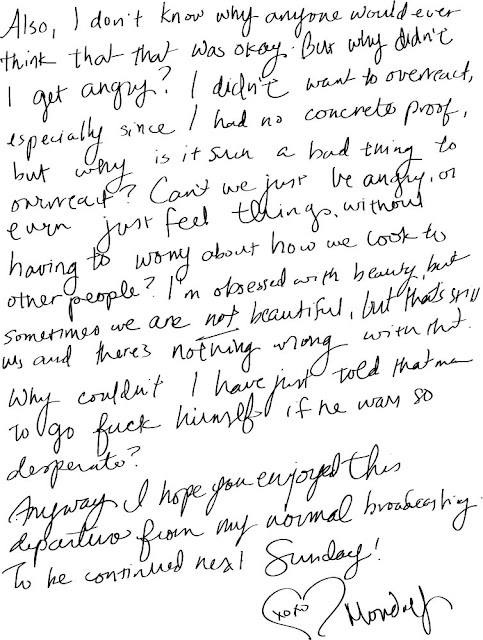 Also, I don't know why anyone would ever
think that that was okay. But why didn't
I get angry? I didn't want to overreact,
especially since I had no concrete proof,
but why is it such a bad thing to
overreact? Can't we just be angry, or
even just feel things, without
having to worry about how we look to
other people? I'm obsessed with beauty, but
sometimes we are not beautiful, but that's still
us and there's nothing wrong with that.
Why couldn't I have just told that man
to go fuck himself if he was so
desperate?
Anyway, I hope you enjoyed this
departure from my normal broadcasting.
To be continued next Sunday!
xoxo Monday